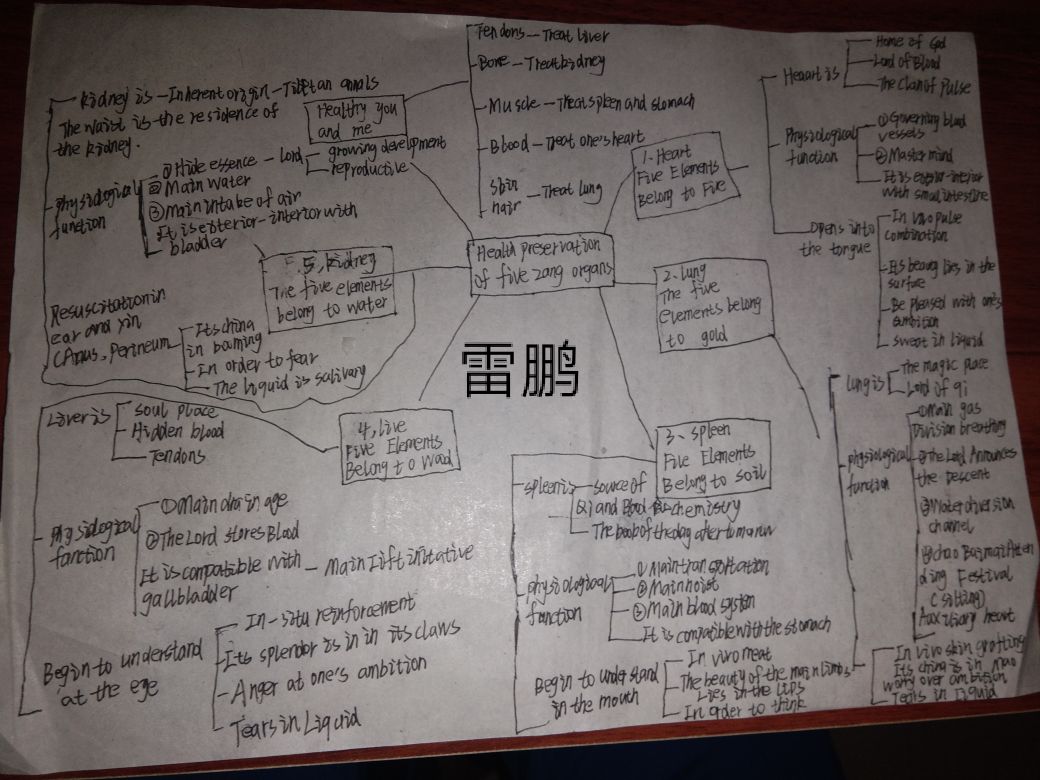 Health preservation
of five zang organs
Healthy you
and me
Tendons - Treat liver
Bone - Treat kidney
Muscle - Treat spleen and stomach
Blood - Treat one's heart
Skin
hair - Treat lung
1. Heart
Five Elements
Belong to Five
Heaart is
Home of God
Lord of Blood
The Clan of Pulse
Physiological
function
①Governing blood
vessels
②Master mind
It is exterior-interior
with small intestine
Opens into
the tongue
In vivo pulse
combination
Its beauty lies in the
surface
Be pleased with one's
ambition
swept in liquid
2. lung
The five
elements belong
to gold
lung is
The magic place
Lord of qi
physiological
function
①main gas
Division breathing
②The Lord Announces
the Descent
③Water diversion
channel
④chao Baimai Atten
ding Festival
(sitting)
Auxiliary heart
In vivo skin grafting
Its china is in mao
worry over ambition
Tears in liquid
3、spleen
Five Elements
Belong to soil
spleen is
source of
Qi and Blood chemistry
physiological
function
①Main transportation
②Main hoist
③Main blood system
It is compatible with the stomach
Begin to understand
in the mouth
In vivo meat
The beauty of the main limbs
Lies in the Lips
In order to think
4, live
Five Elements
Belong to Wood
Liver is
Soul place
Hidden blood
Tendons
physiological
function
①Main drainage
②The Lord stores Blood
It is compatible with
gallbladder
Main Lift initative
Begin to understand
at the eye
In-situ reinforcement
Its splendor is in in its claws
Anger at one's ambition
Tears in Liquid
5, kidney
The five elements
belong to water
kidney is - Inherent origin - Tibetan annals
The waist is the residence of
the kidney.
physiological
function
①Hide essence - Lord
growing development
reproductive
②Main water
③Main intake of air
It is exterior-interior with
bladder
Resuscitation in
ear and yin
(Anus, Perineum
Its china
in
In order to fear
The liquid is salivary
雷鹏